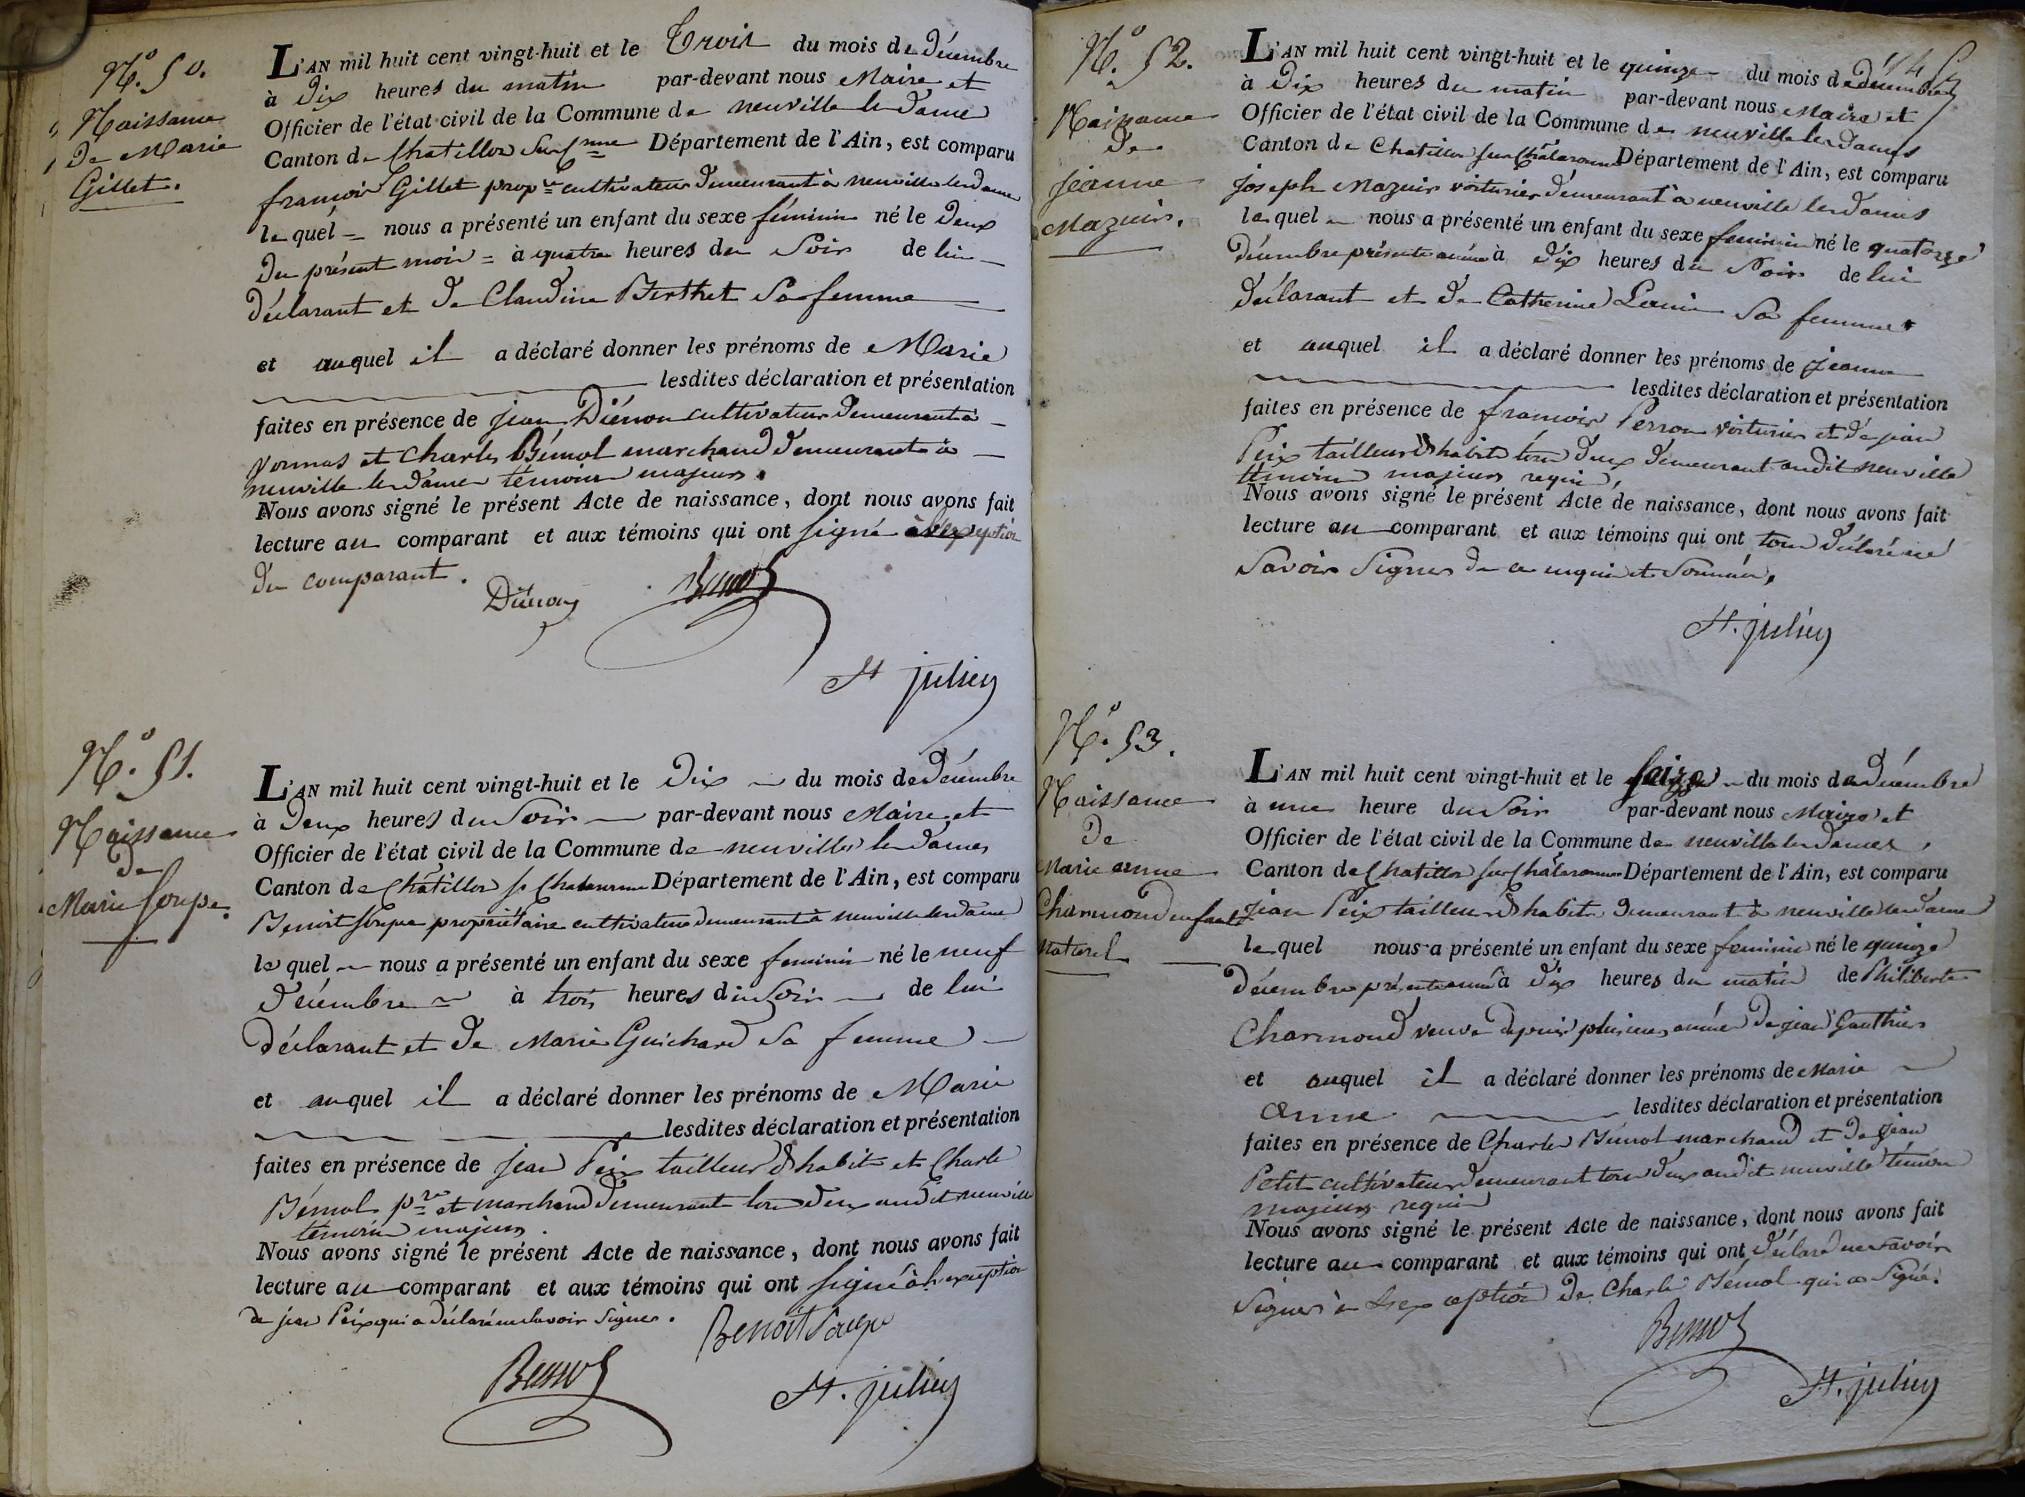 N.° 50.
Naissance
De Marie
Gillet.
L'AN mil huit cent vingt-huit et le Trois du mois de Décembre
à Dix heures du matin par-devant nous Maire et
Officier de l'état civil de la Commune de neuville les Dames
Canton de Chatillon Département de l'Ain, est comparu
francois Gillet prop.re cultivateur demeurant à neuville les dames
lequel nous a présenté un enfant du sexe féminin né le Deux
Du présent mois à quatre heures du Soir de lui
Déclarant et De Claudine Berthet Sa femme
et auquel il a déclaré donner les prénoms de Marie
lesdites déclaration et présentation
faites en présence de jean Diénon cultivateur demeurant à
Vonnas et Charles Bémol marchand demeurant à
neuville les dames témoins majeurs.
Nous avons signé le présent Acte de naissance, dont nous avons fait
lecture au comparant et aux témoins qui ont signé à l'exception
du comparant.
Diénon
St julien
N.° 51.
Naissance
De
Marie Soupe.
L'AN mil huit cent vingt-huit et le Dix du mois de Décembre
à Deux heures du Soir par-devant nous Maire et
Officier de l'état civil de la Commune de neuville les Dames
Canton de Châtillon s. Chalaronne Département de l'Ain, est comparu
Benoit Soupe propriétaire cultivateur demeurant à neuville les dames
lequel nous a présenté un enfant du sexe feminin né le neuf
Décembre à trois heures du Soir de lui
Déclarant et De Marie Guichard Sa femme
et auquel il a déclaré donner les prénoms de Marie
lesdites déclaration et présentation
faites en présence de jean Peix tailleur d'habits et Charle
Bémol p.re et marchand demeurant tous deux audit neuville
temoins majeurs.
Nous avons signé le présent Acte de naissance, dont nous avons fait
lecture au comparant et aux témoins qui ont signé à l'exception
de jean Peix qui a déclaré ne savoir signer.
Benoit Soupe
St. julien
N.° 52.
Naissance
De
jeanne
Mazuir.
L'AN mil huit cent vingt-huit et le quinze du mois de décembre
à Dix heures du matin par-devant nous Maire et
Officier de l'état civil de la Commune de neuville les dames
Canton de Chatillon sur Chalaronne Département de l'Ain, est comparu
joseph Mazuir voiturier demeurant à neuville les dames
lequel nous a présenté un enfant du sexe feminin né le quatorze
Décembre présente année à dix heures du Soir de lui
Déclarant et De Catherine Sa femme
et auquel il a déclaré donner les prénoms de jeanne
lesdites déclaration et présentation
faites en présence de francois Perron voiturier et de jean
Peix tailleur d'habits tous deux demeurant audit neuville
témoins majeurs requis,
Nous avons signé le présent Acte de naissance, dont nous avons fait
lecture au comparant et aux témoins qui ont tous déclaré ne
Savoir Signer de ce enquis et Sommés.
St. julien
N.° 53.
Naissance
De
Marie anne
Charmond enfant
Naturel
L'AN mil huit cent vingt-huit et le seize du mois de Décembre
à une heure du Soir par-devant nous Maire et
Officier de l'état civil de la Commune de neuville les dames,
Canton de Chatillon sur Chalaronne Département de l'Ain, est comparu
jean Peix tailleur d'habits demeurant à neuville les dames
lequel nous a présenté un enfant du sexe feminin né le quinze
Décembre présente année à dix heures du matin de Philiberte
Charmond veuve depuis plusieurs années De jean Gauthier
et auquel il a déclaré donner les prénoms de Marie
anne lesdites déclaration et présentation
faites en présence de Charles Bémol marchand et De jean
Petit cultivateur demeurant tous deux audit neuville témoins
majeurs requis
Nous avons signé le présent Acte de naissance, dont nous avons fait
lecture au comparant et aux témoins qui ont déclaré ne savoir
Signer à l'exception De Charle Bémol qui a Signé.
St. julien